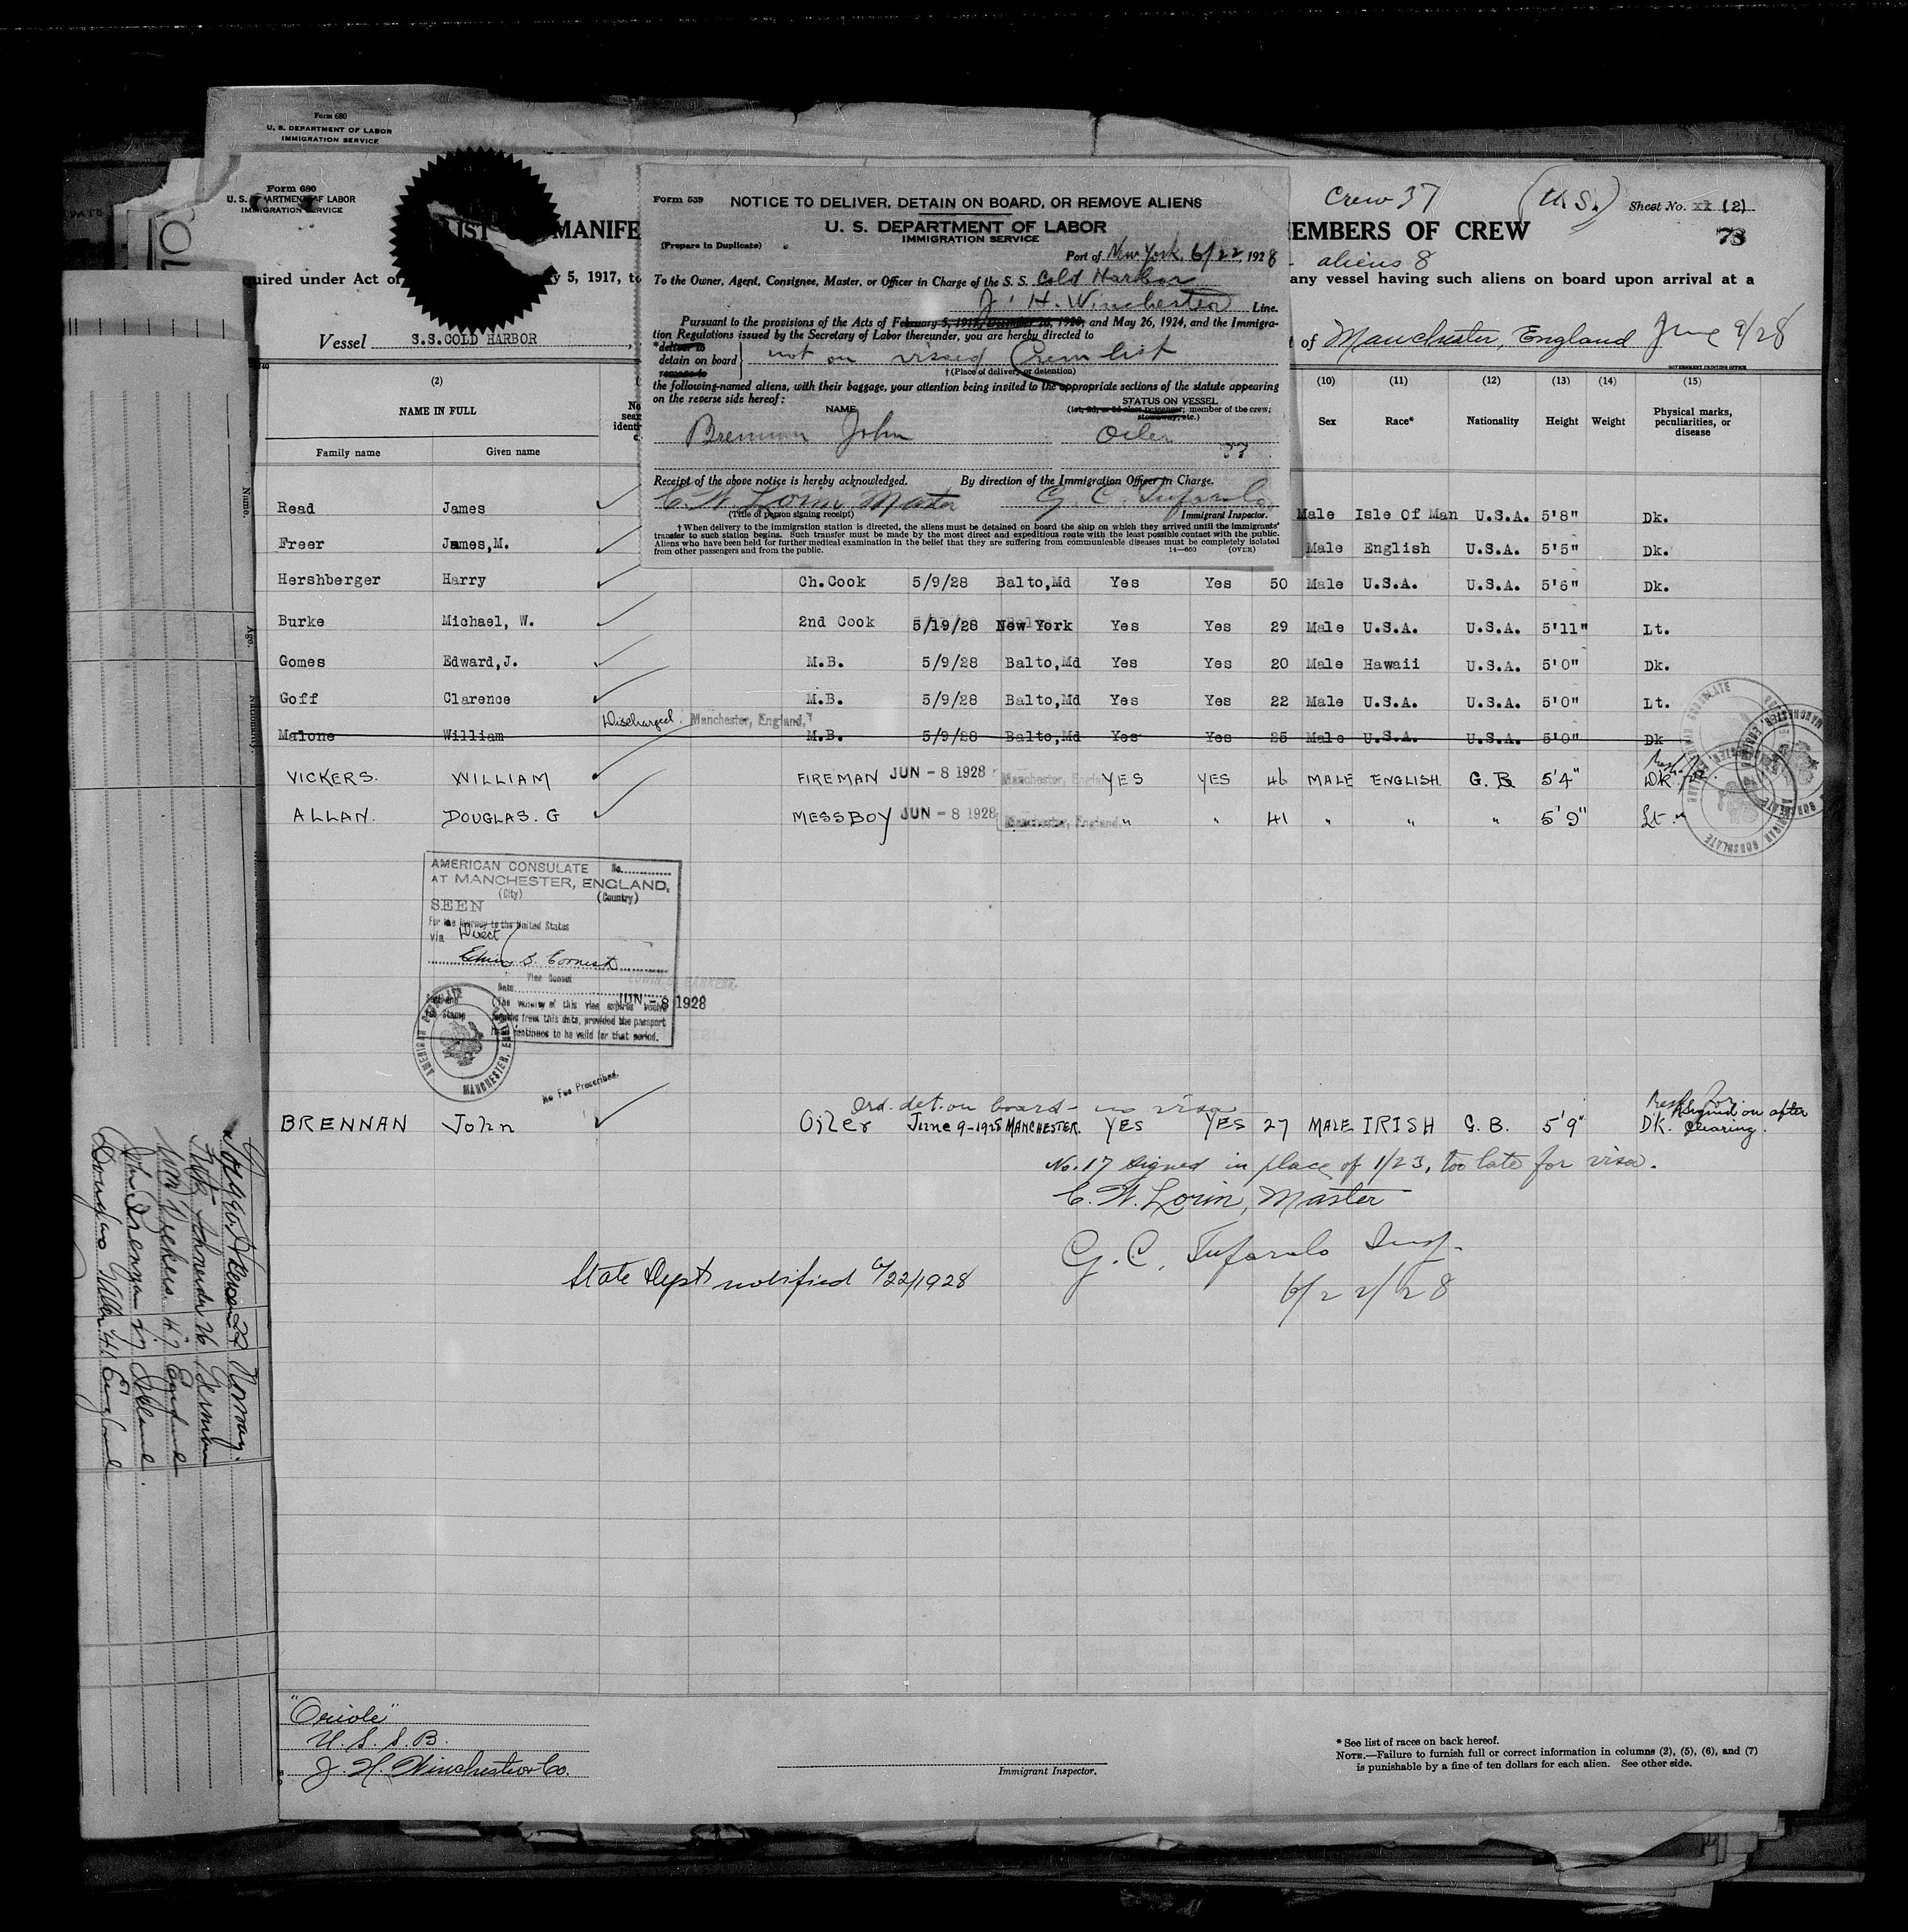 Form 680
U. S. DEPARTMENT OF LABOR
IMMIGRATION SERVICE
Form 680
U. S. DEPARTMENT OF LABOR
IMMIGRATION SERVICE
LIST
MANIFE
EMBERS OF CREW
Crew 37
(U.S.)
Sheet No. (2)
73
aliens 8
quired under Act of
y 5, 1917, to
any vessel having such aliens on board upon arrival at a
Vessel S.S.COLD HARBOR
of Manchester, England June 9/28
GOVERNMENT PRINTING OFFICE
Form 539
NOTICE TO DELIVER, DETAIN ON BOARD, OR REMOVE ALIENS
U. S. DEPARTMENT OF LABOR
IMMIGRATION SERVICE
(Prepare in Duplicate)
Port of New York, 6/22, 1928
To the Owner, Agent, Consignee, Master, or Officer in Charge of the S. S. Cold Harbor
J. H. Winchester Line.
Pursuant to the provisions of the Acts of February 5, 1917, December 26, 1920, and May 26, 1924, and the Immigra-
tion Regulations issued by the Secretary of Labor thereunder, you are hereby directed to
*deliver to
detain on board
remove to
not on vissed Crew list
† (Place of delivery or detention)
the following-named aliens, with their baggage, your attention being invited to the appropriate sections of the statute appearing
on the reverse side hereof:
NAME
STATUS ON VESSEL
(1st, 2d, or 3d class passenger; member of the crew;
stowaway, etc.)
Brennan John Oiler
Receipt of the above notice is hereby acknowledged. By direction of the Immigration Officer in Charge.
C. W. Lorin Master G. C. Tufarolo
(Title of person signing receipt) Immigrant Inspector.
† When delivery to the immigration station is directed, the aliens must be detained on board the ship on which they arrived until the immigrants'
transfer to such station begins. Such transfer must be made by the most direct and expeditious route with the least possible contact with the public.
Aliens who have been held for further medical examination in the belief that they are suffering from communicable diseases must be completely isolated
from other passengers and from the public.
14—660 (OVER)
(2) (10) (11) (12) (13) (14) (15)
NAME IN FULL
Family name Given name
Sex Race* Nationality Height Weight Physical marks, peculiarities, or disease
Read James Male Isle Of Man U.S.A. 5'8" Dk.
Freer James,M. Male English U.S.A. 5'5" Dk.
Hershberger Harry Ch.Cook 5/9/28 Balto,Md Yes Yes 50 Male U.S.A. U.S.A. 5'6" Dk.
Burke Michael, W. 2nd Cook 5/19/28 New York Yes Yes 29 Male U.S.A. U.S.A. 5'11" Lt.
Gomes Edward,J. M.B. 5/9/28 Balto,Md Yes Yes 20 Male Hawaii U.S.A. 5'0" Dk.
Goff Clarence M.B. 5/9/28 Balto,Md Yes Yes 22 Male U.S.A. U.S.A. 5'0" Lt.
Discharged. Manchester, England.
Malone William M.B. 5/9/28 Balto,Md Yes Yes 25 Male U.S.A. U.S.A. 5'0" Dk
VICKERS. WILLIAM FIREMAN JUN - 8 1928 Manchester, England YES YES 46 MALE ENGLISH. G. B 5'4" DK.
ALLAN. DOUGLAS. G MESSBOY JUN - 8 1928 Manchester, England. " " 41 " " " 5'9" Lt
AMERICAN CONSULATE No.
AT MANCHESTER, ENGLAND.
(City) (Country)
SEEN
For the journey to the United States
Via Direct
Vice Consul
Date JUN - 8 1928
(The validity of this visa expires twelve
months from this date, provided the passport
continues to be valid for that period.
AMERICAN CONSULATE
MANCHESTER, ENGLAND
No Fee Prescribed.
Ord. det. on board - no visa
BRENNAN John Oiler June 9-1928 MANCHESTER. YES YES 27 MALE IRISH G. B. 5'9" DK.
Signed on after
Clearing.
No. 17 signed in place of 1/23, too late for visa.
C. W. Lorin, Master
G. C. Tufarolo Insp.
6/22/28
State Dept notified 6/22/1928
Name.
Age.
Nationality.
22 Norway.
Schneider 26 German
Wm Vickers 47 England
John Brennan 27 Ireland.
Douglas Allan 41 England
"Oriole"
U. S. S. B.
J. H. Winchester Co.
Immigrant Inspector.
* See list of races on back hereof.
NOTE.—Failure to furnish full or correct information in columns (2), (5), (6), and (7)
is punishable by a fine of ten dollars for each alien. See other side.